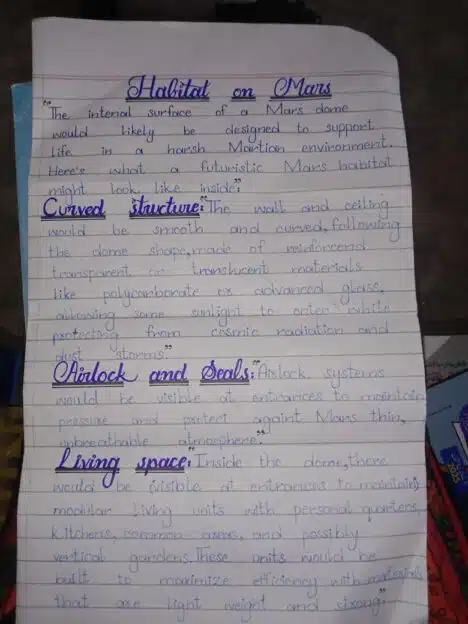 Habitat on Mars
"The internal surface of a Mars dome
would likely be designed to support
life in a harsh Martian environment.
Here's what a futuristic Mars habitat
might look like inside:"
Curved structure:"The wall and ceiling
would be smooth and curved, following
the dome shape, made of reinforcend
transparent or translucent materials
like polycarbonate or advanced glass,
allowing some sunlight to enter while
protecting from cosmic radiation and
dust storms."
Airlock and Seals:"Airlock systems
would be visible at entrances to maintain
pressure and protect againt Mars thin,
unbreathable atmosphere."
Living space:"Inside the dome, there
would be (visible at entrances to maintain)
modular living units with personal quarters,
kitchens, common areas, and possibly
vertical gardens. These units would be
built to maximize efficiency with materials
that are light weight and strong."
2025